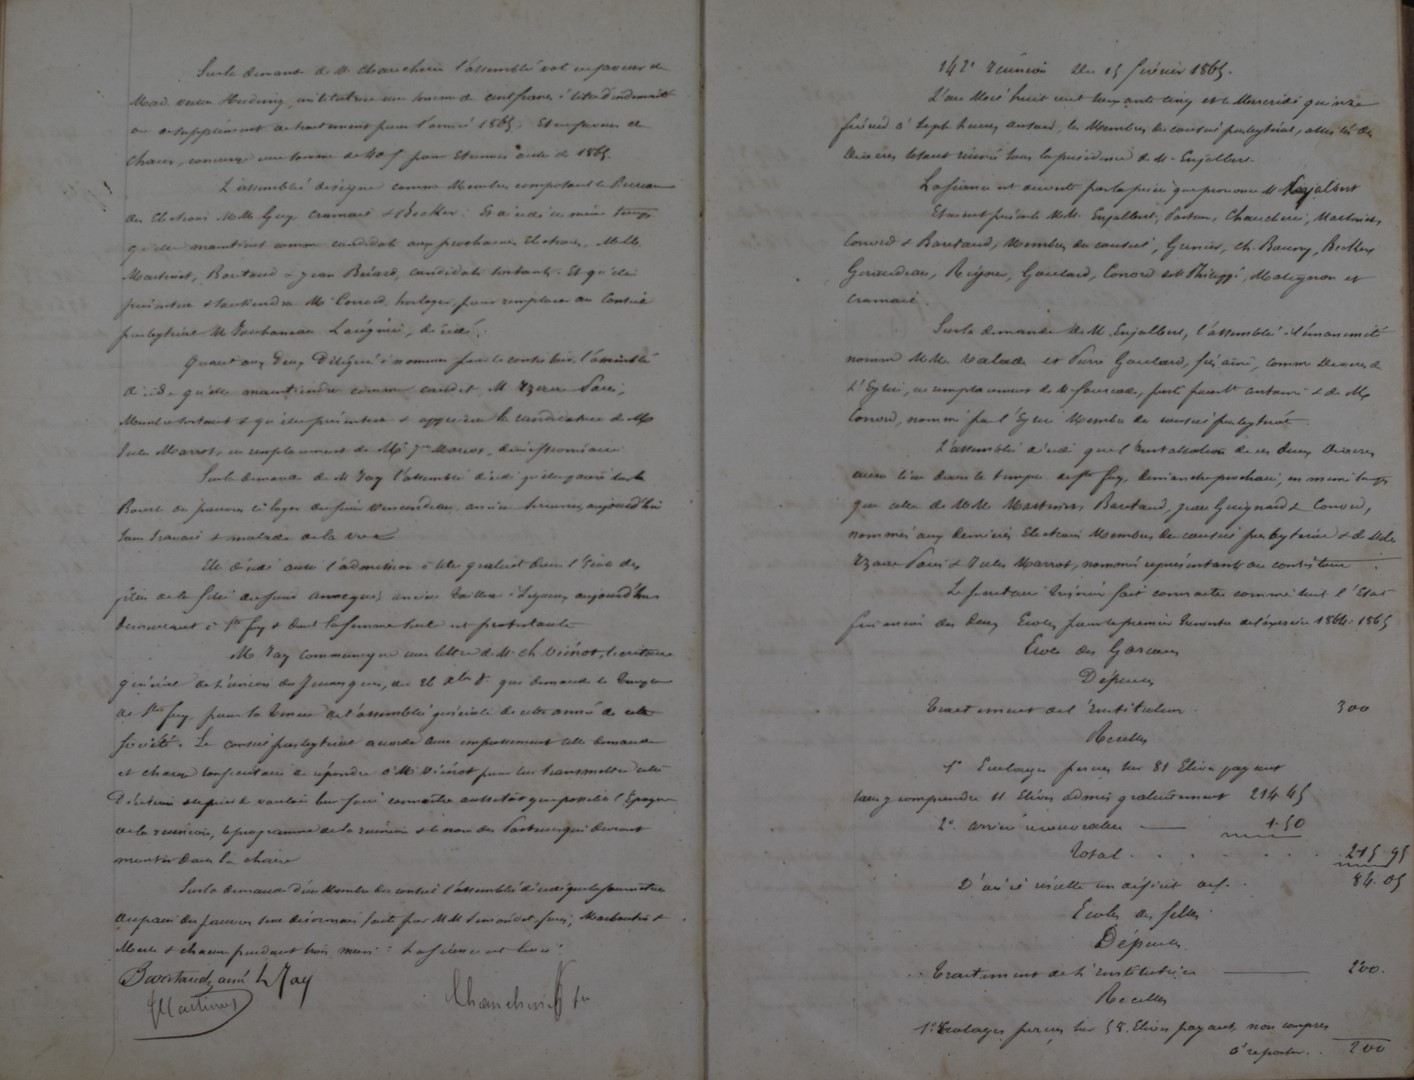 Sur la demande de M. Chaucherie l'assemblée vote en faveur de
Mad. veuve institutrice une somme de cent francs à titre d'indemnité
ou de supplément de traitement pour l'année 1865. Et en faveur de
Charon, concierge une somme de 40 f pour étrennes de 1865.
L'assemblée désigne comme Membres composant le Bureau
des Elections M.M. Guy Cramail & Becker. Et décide en même temps
qu'elle maintient comme candidats aux prochaines Elections, M.M.
Martinet, Barstaud & Jean candidats sortants. Et qu'elle
présentera & soutiendra M. Conord, horloger, pour remplacer au Conseil
presbytéral M. décédé.
Quant aux deux Délégués à nommer pour le consistoire, l'assemblée
décide qu'elle maintiendra comme candidat M.
Membre sortant & qu'elle présentera & appuiera la candidature de M.
Jules Marrot, en remplacement de M. démissionnaire
Sur la demande de M. Jay l'assemblée décide qu'elle paiera sur la
Bourse des pauvres le loyer du sieur ancien aujourd'hui
sans travail & malade de la vue
Elle décide aussi l'admission à titre gratuit dans l'école des
filles de la fille du sieur ancien tailleur à aujourd'hui
demeurant à Ste foy & dont la femme seule est protestante
M. Jay communique une lettre de M. Ch. Viénot, secrétaire
général de l'union des du 26 Xbre dr. qui demande le Temple
de Ste foy, pour la tenue de l'assemblée générale de cette année de cette
société. Le conseil presbytéral accorde avec empressement cette demande
et charge son secrétaire de répondre à M. Viénot pour lui transmettre cette
Décision & le prier de vouloir leur faire connaître aussitôt que possible l'Epoque
de la réunion, le programme de la réunion & le nom des Pasteurs qui devront
monter dans la chaire
Sur la demande d'un Membre du conseil l'assemblée décide que la fourniture
du pain des pauvres sera désormais faite par M.M.
Merle & chacun pendant trois mois. La séance est levée.
Barstaud aîné L Jay
Martinet Chaucherie
142e réunion du 15 février 1865.
L'an Mil huit cent soixante cinq et le Mercredi quinze
février à sept heures du soir, les Membres du conseil presbytéral, assistés des
Diacres se sont réunis sous la présidence de M. Enjalbert.
La séance est ouverte par la prière que prononce M. Enjalbert
Etaient présents M.M. Enjalbert, Pasteur, Chaucherie, Martinet,
Conord & Barstaud, Membres du conseil, Grenier, Ch. Becker
Giraudeau, Goulard, Conord Matignon et
Cramail.
Sur la demande de M. Enjalbert, l'assemblée à l'unanimité
nomme M.M. Valade et Pierre Goulard, fils aîné, comme Diacres de
L'Eglise, en remplacement de M. & de M.
Conord, nommé par l'Eglise Membre du conseil presbytéral.
L'assemblée décide que l'Installation de ces deux Diacres
aura lieu dans le temple de Ste foy, dimanche prochain, en même temps
que celle de M.M. Martinet, Barstaud, Jean Guignard & Conord,
nommés aux dernières Elections Membres du conseil presbytéral & de M.M.
& Jules Marrot, nommés représentants au consistoire.
Le secrétaire trésorier fait connaître comme suit l'Etat
financier des deux Ecoles pour le premier trimestre de l'exercice 1864-1865
Ecole des Garçons
Dépenses
Traitement de l'Instituteur. 300
Recettes
1° Ecolages perçus sur 81 Elèves payant
sans y comprendre 11 Elèves admis gratuitement 214.45
2° arriéré recouvré 1.50
Total. . . . . . . 215.95
D'où il résulte un déficit de f. 84.05
Ecoles des filles
Dépenses
Traitement de l'Institutrice 200.
Recettes
1° Ecolages perçus sur 58 Elèves payant, non compris
à reporter. . 200